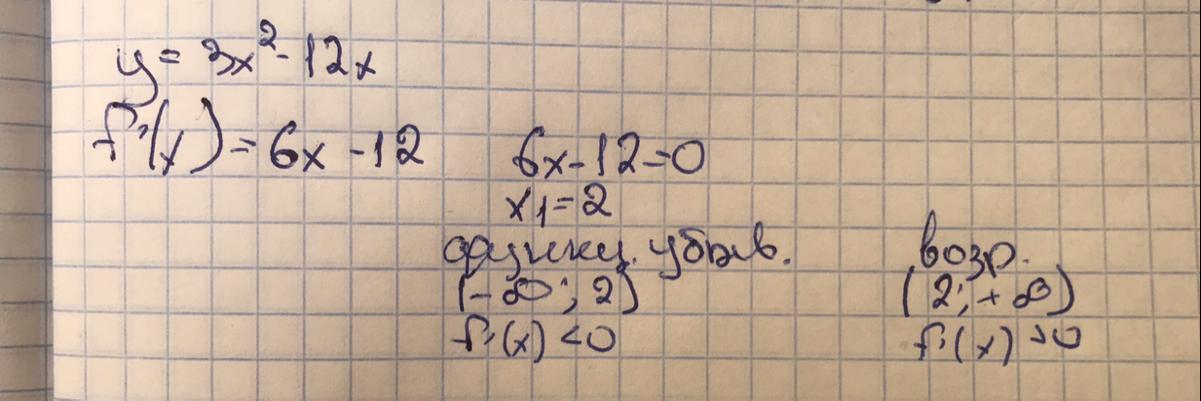 y = 3x² - 12x
f'(x) = 6x - 12
6x - 12 = 0
x1 = 2
функц. убыв.
(-∞; 2)
f'(x) < 0
возр.
(2; +∞)
f'(x) > 0